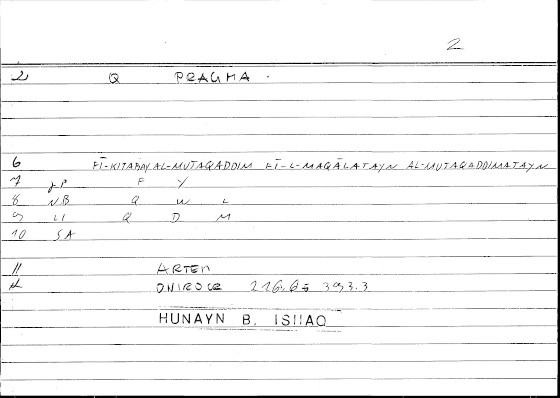 2
2 Q PRAGMA .
6 FĪ-KITABAY AL-MUTAQADDIM FĪ-L-MAQĀLATAYN AL-MUTAQADDIMATAYN
7 JP F Y
8 NB Q W L
9 LI Q D M
10 SA
11 ARTEM
12 ONIROCR 216,6 = 393.3
HUNAYN B. ISHAQ